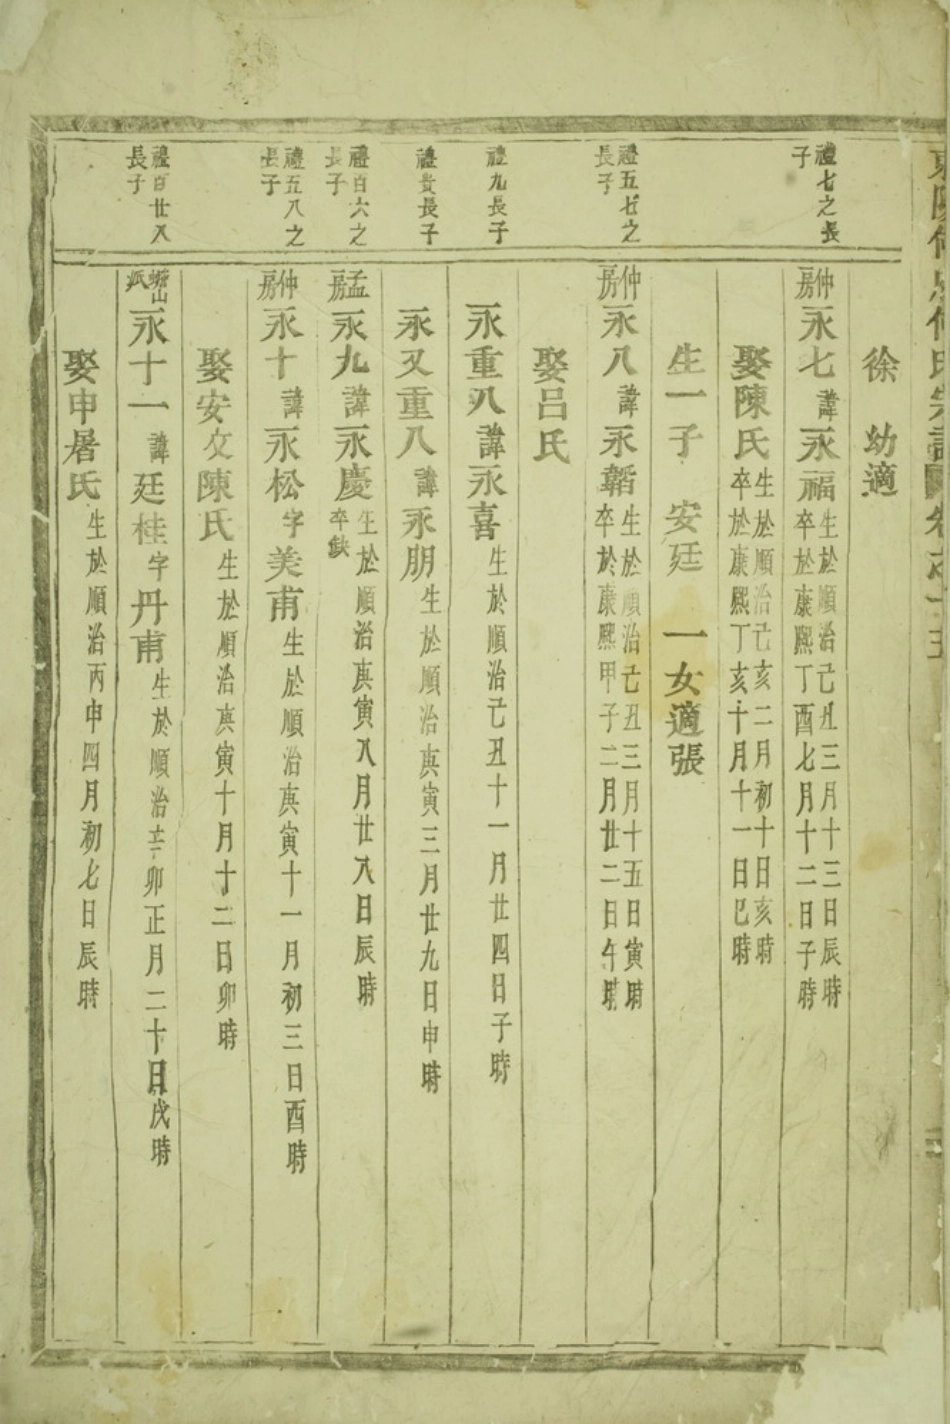 徐　幼適
禮七之長子
仲房永七諱永福生於順治己丑三月十三日辰時卒於康熙丁酉七月十二日子時
娶陳氏生於順治己亥二月初十日亥時卒於康熙丁亥十月十一日巳時
生一子　安廷　一女適張
禮五七之長子
仲房永八諱永韜生於順治己丑三月十五日寅時卒於康熙甲子二月廿二日午時
娶呂氏
禮九長子
永重八諱永喜生於順治己丑十一月廿四日子時
禮贵長子
永又重八諱永朋生於順治庚寅三月廿九日申時
禮百六之長子
孟房永九諱永慶生於順治庚寅八月廿八日辰時卒缺
禮五八之長子
仲房永十諱永松字美甫生於順治庚寅十一月初三日酉時
娶安文陳氏生於順治庚寅十月十二日卯時
禮百廿八長子
山派永十一諱廷桂字丹甫生於順治辛卯正月二十日戌時
娶申屠氏生於順治丙申四月初七日辰時